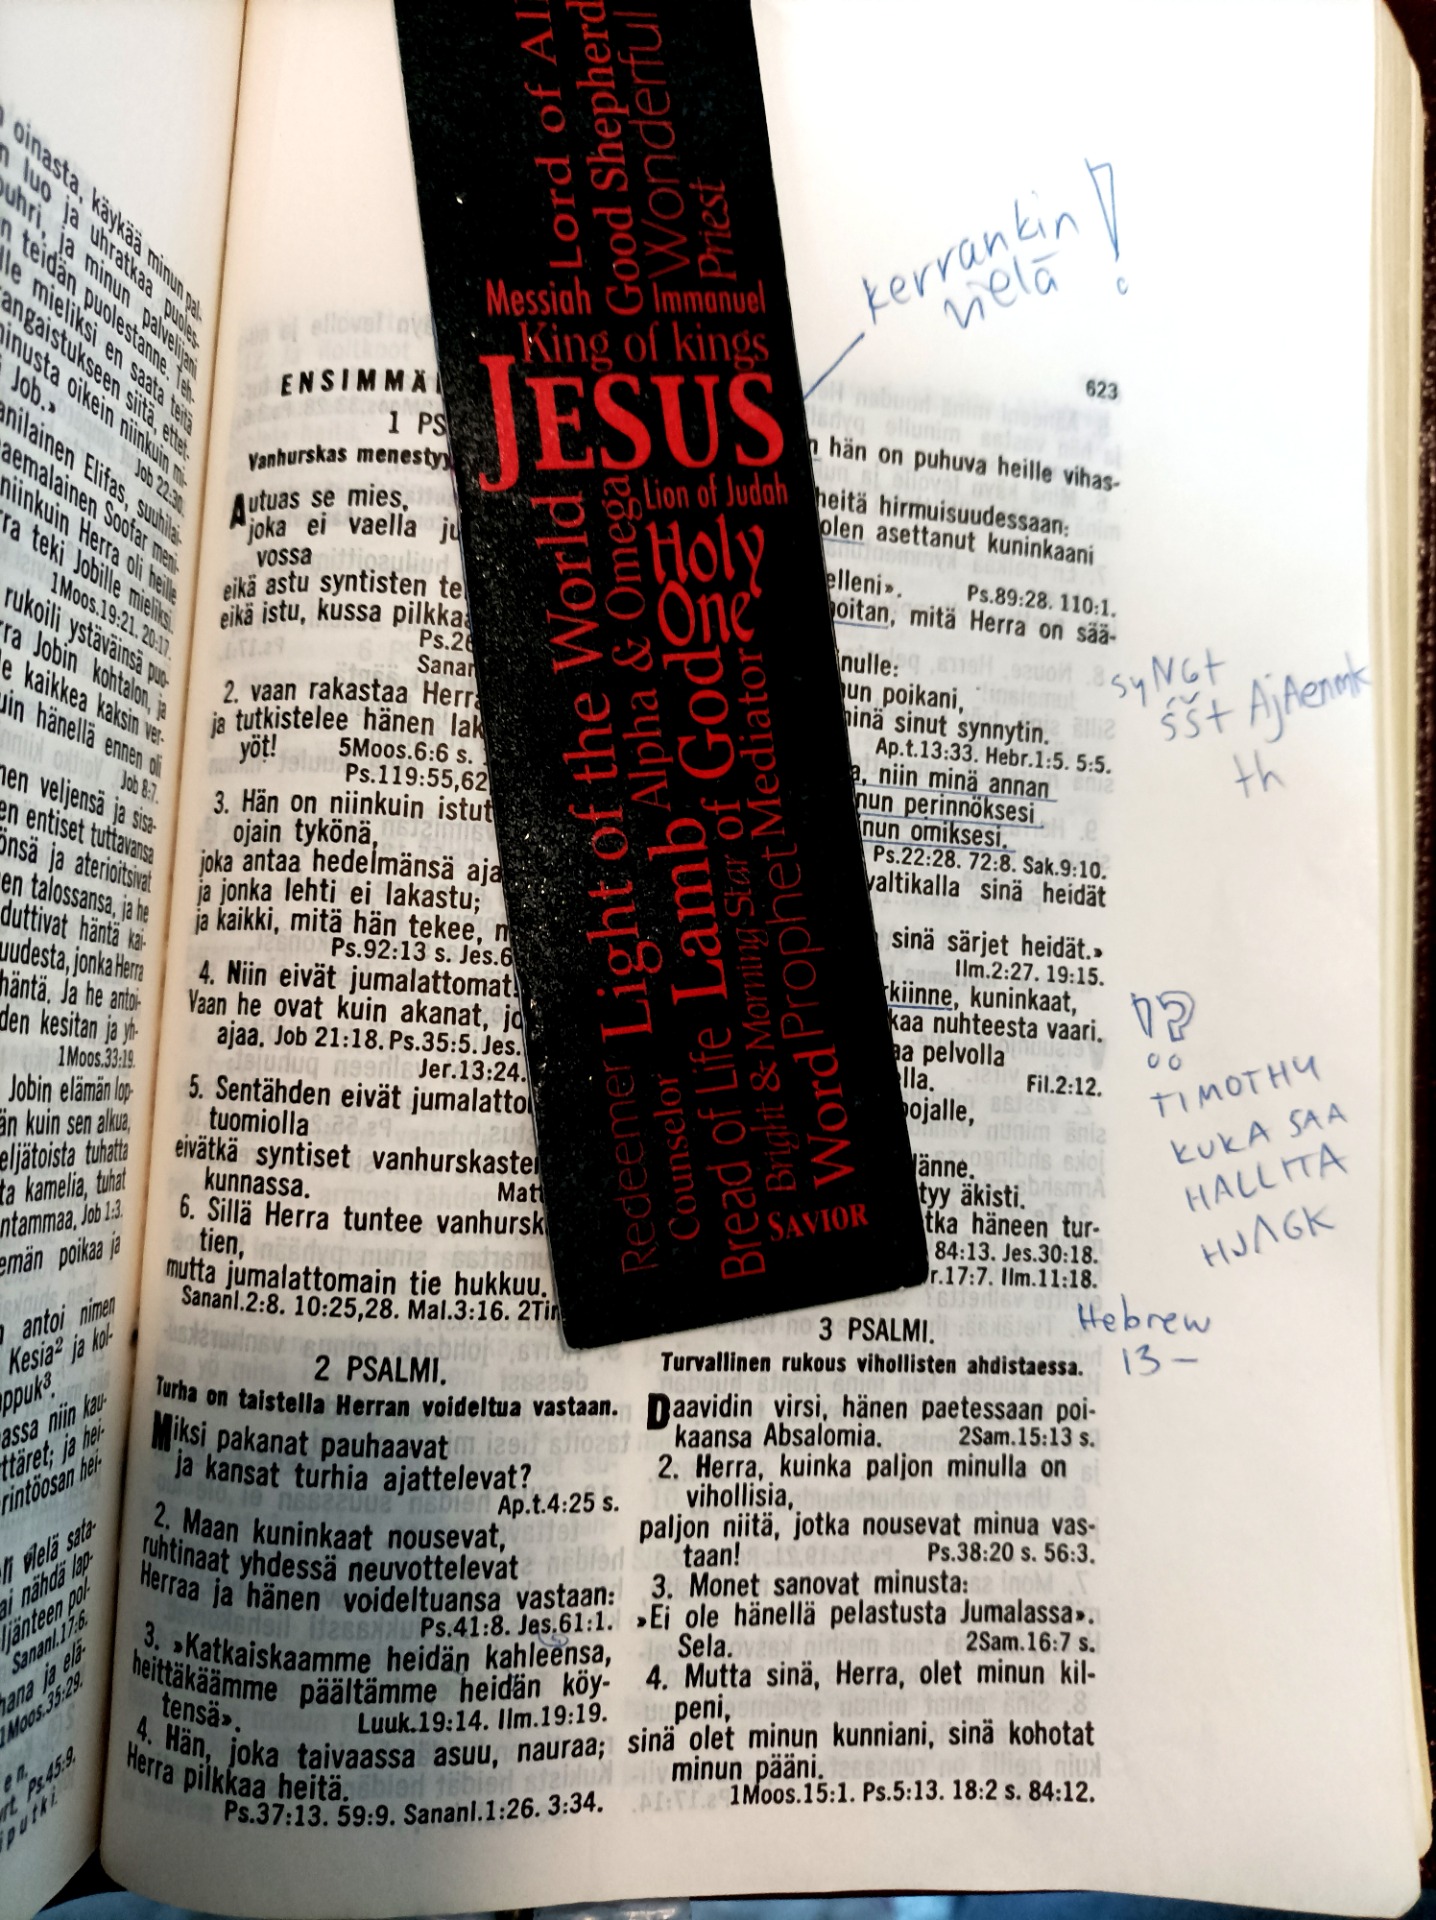 oinasta, käykää minun pal-
luo ja uhratkaa puoles-
uhri, ja minun palvelijani
teidän puolestanne. Teh-
mieliksi en saata teitä
angaistukseen siitä, ettet-
minusta oikein niinkuin mi-
Job.»
Job 22:30.
Elifas, suuhilai-
naemalainen Soofar meni-
niinkuin Herra oli heille
teki Jobille mieliksi.
1Moos.19:21. 20:17.
rukoili ystäväinsä puo-
Jobin kohtalon, ja
kaikkea kaksin ver-
kuin hänellä ennen oli
Job 8:7.
veljensä ja sisa-
entiset tuttavansa
ja aterioitsivat
talossansa, ja he
duttivat häntä kai-
jonka Herra
häntä. Ja he antoi-
kesitan ja yh-
1Moos.33:19.
Jobin elämän lop-
kuin sen alkua,
neljätoista tuhatta
kamelia, tuhat
Job 1:3.
poikaa ja
antoi nimen
Kesia² ja kol-
niin kau-
ja hei-
hei-
vielä sata-
nähdä lap-
pol-
Sananl.17:6.
ja elä-
1Moos.35:29.
Ps.45:9.
ENSIMMÄ
1 PS
Vanhurskas menestyy
Autuas se mies,
joka ei vaella ju
vossa
eikä astu syntisten te
eikä istu, kussa pilkka
Ps.26
Sanan
2. vaan rakastaa Herra
ja tutkistelee hänen lak
yöt! 5Moos.6:6 s.
Ps.119:55,62
3. Hän on niinkuin istut
ojain tykönä,
joka antaa hedelmänsä aja
ja jonka lehti ei lakastu;
ja kaikki, mitä hän tekee, m
Ps.92:13 s. Jes.6
4. Niin eivät jumalattomat
Vaan he ovat kuin akanat, jo
ajaa. Job 21:18. Ps.35:5. Jes.
Jer.13:24.
5. Sentähden eivät jumalatto
tuomiolla
eivätkä syntiset vanhurskaste
kunnassa. Matt
6. Sillä Herra tuntee vanhursk
tien,
mutta jumalattomain tie hukkuu.
Sananl.2:8. 10:25,28. Mal.3:16. 2Tim
2 PSALMI.
Turha on taistella Herran voideltua vastaan.
Miksi pakanat pauhaavat
ja kansat turhia ajattelevat?
Ap.t.4:25 s.
2. Maan kuninkaat nousevat,
ruhtinaat yhdessä neuvottelevat
Herraa ja hänen voideltuansa vastaan:
Ps.41:8. Jes.61:1.
3. »Katkaiskaamme heidän kahleensa,
heittäkäämme päältämme heidän köy-
tensä». Luuk.19:14. Ilm.19:19.
4. Hän, joka taivaassa asuu, nauraa;
Herra pilkkaa heitä.
Ps.37:13. 59:9. Sananl.1:26. 3:34.
Lord of All
Good Shepherd
Wonderful
Priest
Messiah
Immanuel
King of kings
JESUS
Lion of Judah
Holy
One
Light of the World
Alpha & Omega
Lamb of God
Mediator
Redeemer
Counselor
Bread of Life
Bright & Morning Star
Prophet
Word
SAVIOR
kerrankin
vielä!
623
hän on puhuva heille vihas-
heitä hirmuisuudessaan:
olen asettanut kuninkaani
elleni». Ps.89:28. 110:1.
oitan, mitä Herra on sää-
nulle:
un poikani,
minä sinut synnytin.
Ap.t.13:33. Hebr.1:5. 5:5.
a, niin minä annan
nun perinnöksesi
nun omiksesi.
Ps.22:28. 72:8. Sak.9:10.
valtikalla sinä heidät
sinä särjet heidät.»
Ilm.2:27. 19:15.
kiinne, kuninkaat,
kaa nuhteesta vaari.
aa pelvolla
lla. Fil.2:12.
pojalle,
änne.
tyy äkisti.
tka häneen tur-
84:13. Jes.30:18.
r.17:7. Ilm.11:18.
3 PSALMI.
Turvallinen rukous vihollisten ahdistaessa.
Daavidin virsi, hänen paetessaan poi-
kaansa Absalomia. 2Sam.15:13 s.
2. Herra, kuinka paljon minulla on
vihollisia,
paljon niitä, jotka nousevat minua vas-
taan! Ps.38:20 s. 56:3.
3. Monet sanovat minusta:
»Ei ole hänellä pelastusta Jumalassa».
Sela. 2Sam.16:7 s.
4. Mutta sinä, Herra, olet minun kil-
peni,
sinä olet minun kunniani, sinä kohotat
minun pääni.
1Moos.15:1. Ps.5:13. 18:2 s. 84:12.
th
!?
TIMOTHY
KUKA SAA
HALLITA
Hebrew
13 -